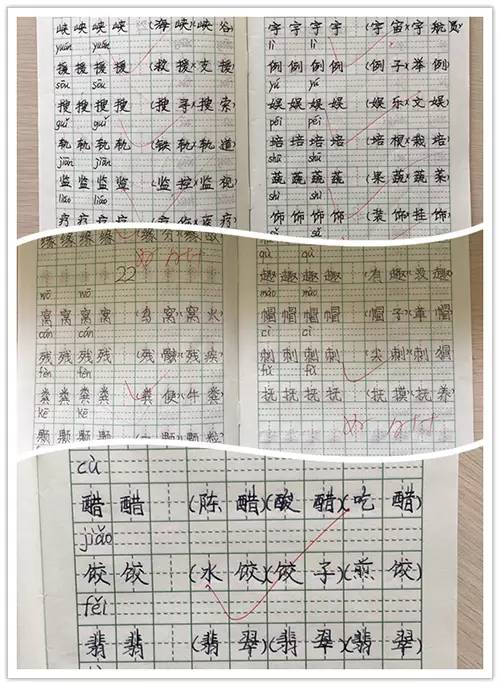 峡 峡 峡 峡 (海 峡)(峡 谷)
yuán yuán
援 援 援 援 (救 援)(支 援)
sōu sōu
搜 搜 搜 搜 (搜 寻)(搜 索)
guǐ guǐ
轨 轨 轨 轨 (铁 轨)(轨 道)
jiān jiān
监 监 监 监 (监 控)(监 视)
liáo liáo
疗 疗 疗 疗
宇 宇 宇 宇 (宇 宙)(宇 航 员)
lì lì
例 例 例 例 (例 子)(举 例)
yú yú
娱 娱 娱 娱 (娱 乐)(文 娱)
péi péi
培 培 培 培 (培 根)(栽 培)
shū shū
蔬 蔬 蔬 蔬 (果 蔬)(蔬 菜)
shì shì
饰 饰 饰 饰 (装 饰)(挂 饰)
缘 缘 缘 缘
22
wō wō
窝 窝 窝 窝
cán cán
残 残 残 残
fèn fèn
粪 粪 粪 粪 (粪 便)(牛 粪)
kē kē
颗 颗 颗 颗
qù qù
趣 趣 趣 趣 (有 趣)(没 趣)
mào mào
帽 帽 帽 帽 (帽 子)
cì cì
刺 刺 刺 刺 (尖 刺)(刺 猬)
fǔ fǔ
抚 抚 抚 抚 (抚 摸)(抚 养)
cù
醋 醋 (陈 醋)(酸 醋)(吃 醋)
jiǎo
饺 饺 (水 饺)(饺 子)(煎 饺)
fěi
翡 翡 (翡 翠)(翡 翠)(翡 翠)